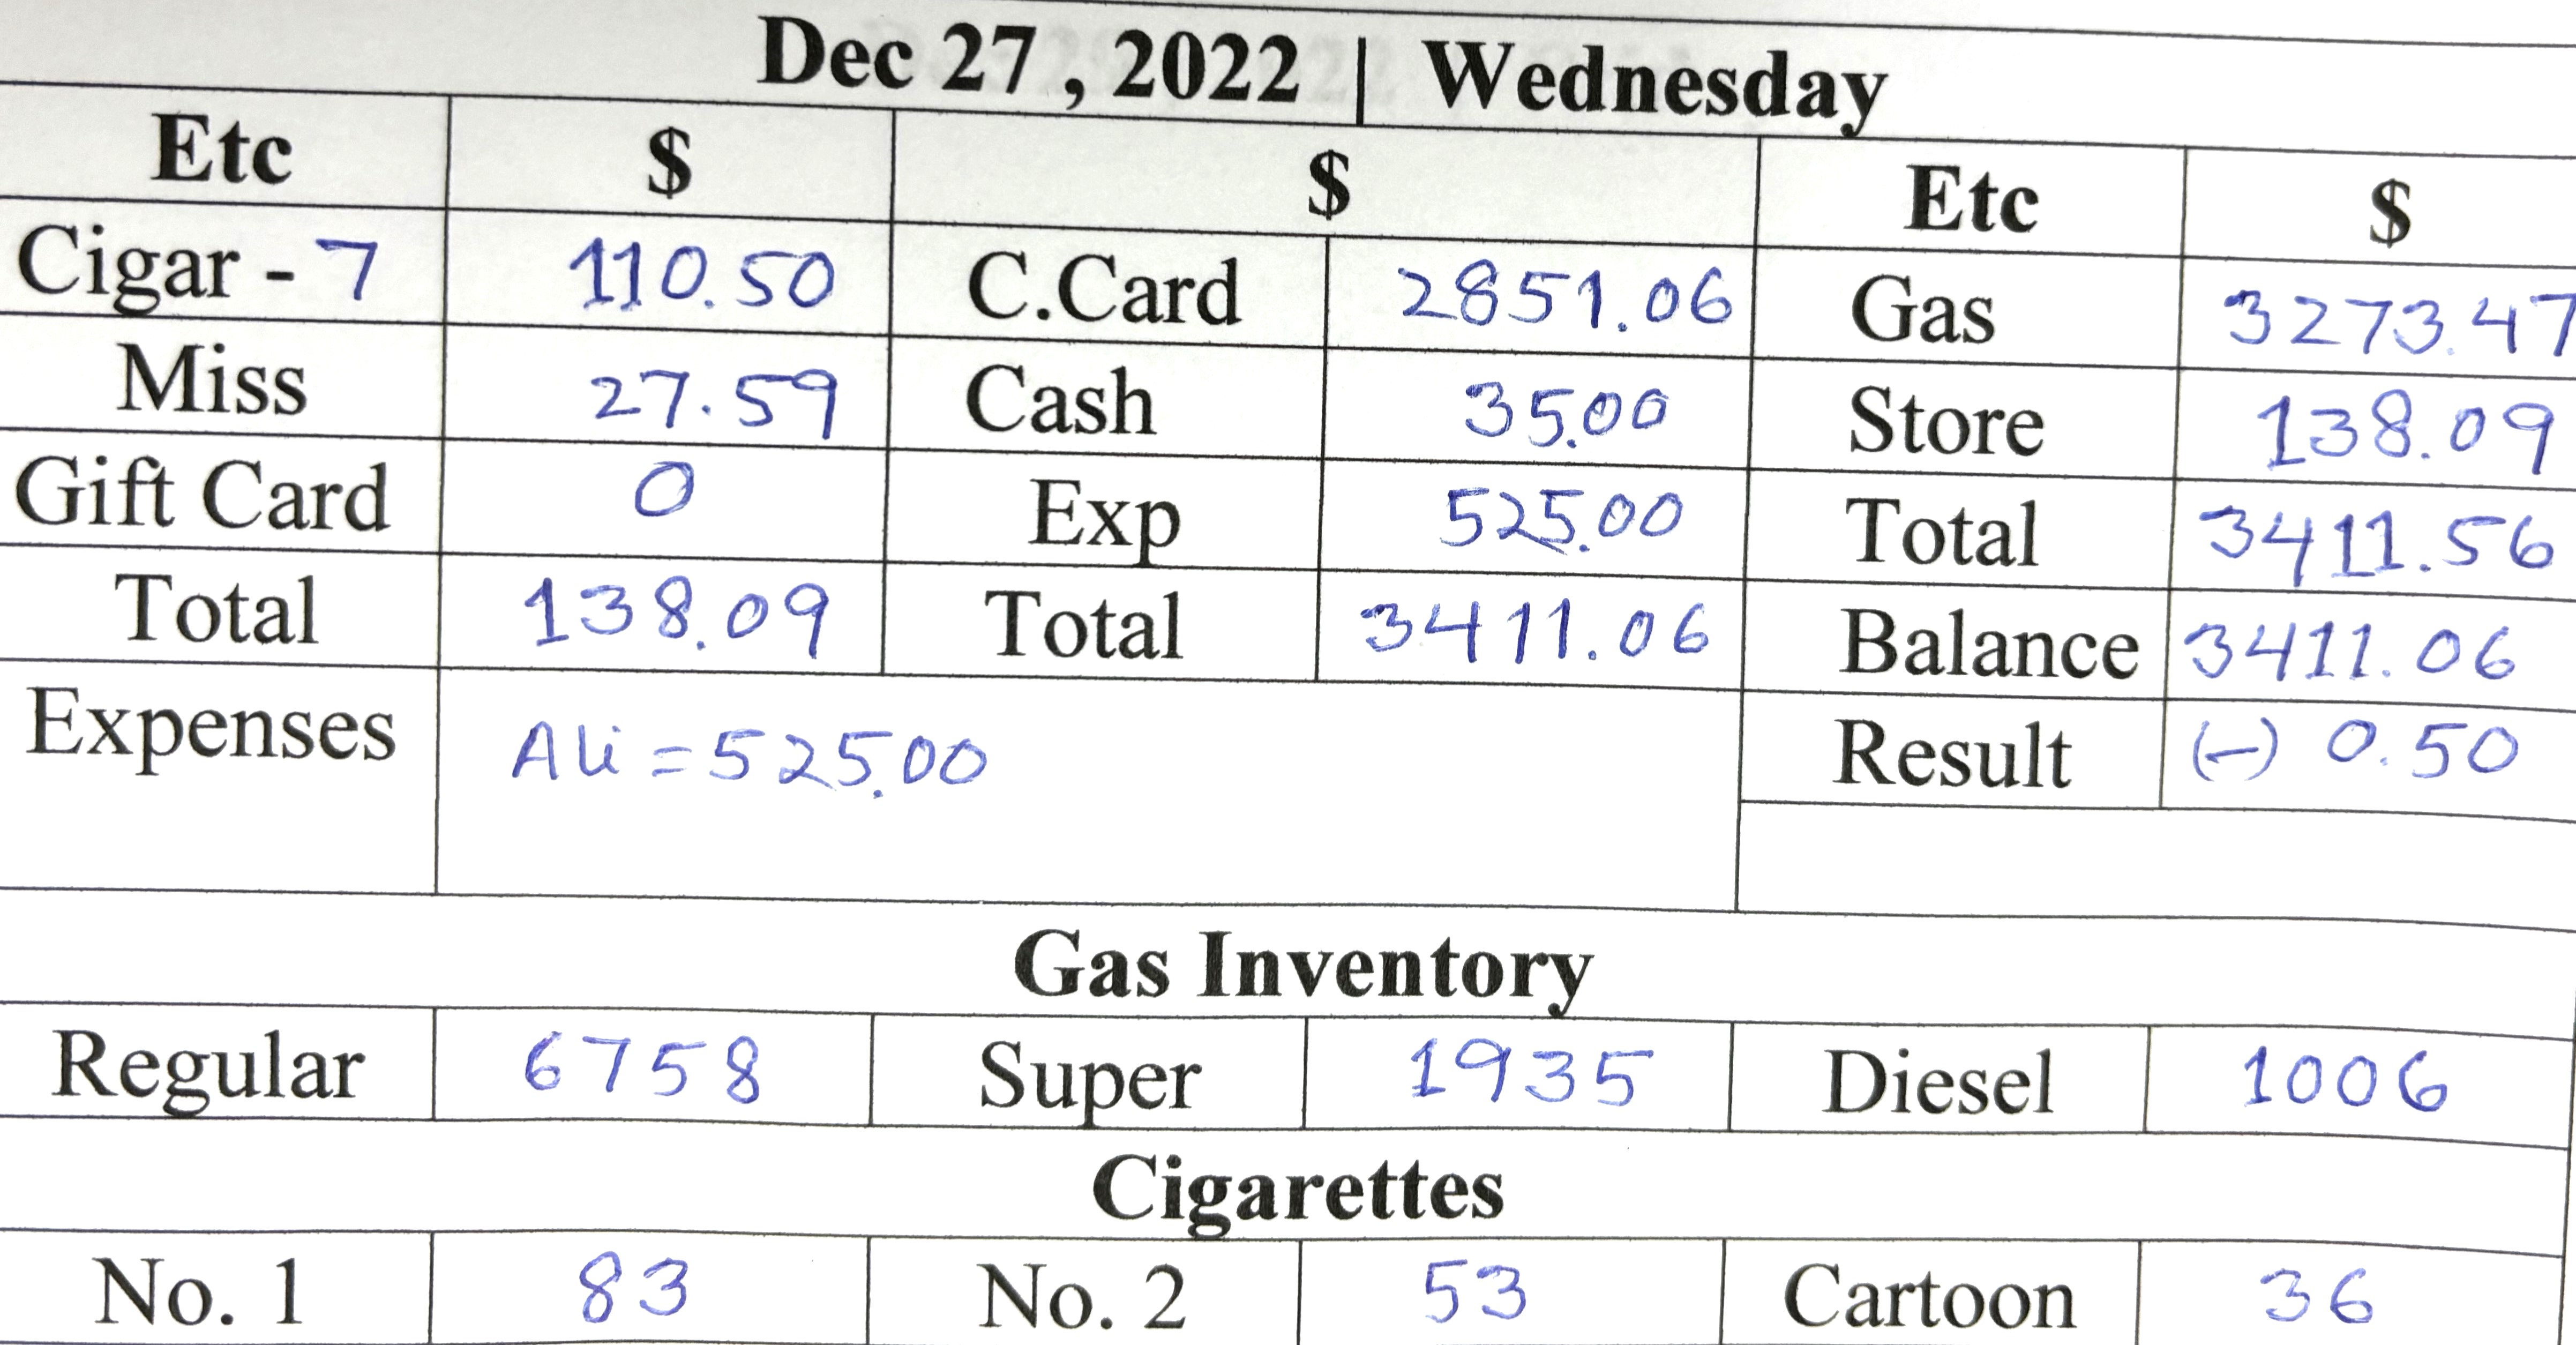 Dec 27 , 2022 | Wednesday
Etc $ $ Etc $
Cigar - 7 110.50 C.Card 2851.06 Gas 3273.47
Miss 27.59 Cash 35.00 Store 138.09
Gift Card 0 Exp 525.00 Total 3411.56
Total 138.09 Total 3411.06 Balance 3411.06
Expenses Ali = 525.00 Result (-) 0.50
Gas Inventory
Regular 6758 Super 1935 Diesel 1006
Cigarettes
No. 1 83 No. 2 53 Cartoon 36